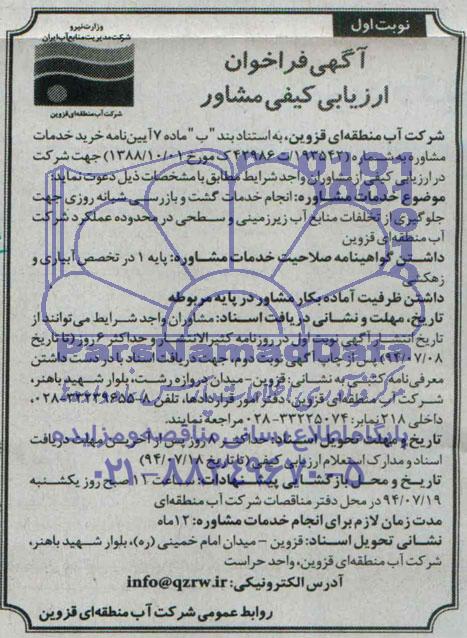 نوبت اول
وزارت نیرو
شرکت مدیریت منابع آب ایران
شرکت آب منطقه‌ای قزوین
آگهی فراخوان
ارزیابی کیفی مشاور
شرکت آب منطقه‌ای قزوین، به استناد بند "ب" ماده ۷ آیین‌نامه خرید خدمات
مشاوره به شماره (۱۹۳۵۴۲/ت ۴۲۹۸۶ ک مورخ ۱۳۸۸/۱۰/۰۱) جهت شرکت
در ارزیابی کیفی از مشاوران واجد شرایط مطابق با مشخصات ذیل دعوت نماید.
موضوع خدمات مشاوره: انجام خدمات گشت و بازرسی شبانه روزی جهت
جلوگیری از تخلفات منابع آب زیرزمینی و سطحی در محدوده عملکرد شرکت
آب منطقه‌ای قزوین
داشتن گواهینامه صلاحیت خدمات مشاوره: پایه ۱ در تخصص آبیاری و
زهکشی
داشتن ظرفیت آماده بکار مشاور در پایه مربوطه
تاریخ، مهلت و نشانی دریافت اسناد: مشاوران واجد شرایط می‌توانند از
تاریخ انتشار آگهی نوبت اول در روزنامه کثیرالانتشار و حداکثر ۶ روز (تا تاریخ
۹۴/۰۷/۰۸) پس از چاپ آگهی نوبت دوم، جهت دریافت اسناد با در دست داشتن
معرفی‌نامه کتبی به نشانی: قزوین - میدان دروازه رشت، بلوار شهید باهنر،
شرکت آب منطقه‌ای قزوین، دفتر امور قراردادها، تلفن ۸-۳۳۳۳۹۶۵۵-۰۲۸،
داخلی ۲۱۸ نمابر: ۳۳۲۲۵۰۷۴-۰۲۸ مراجعه نمایند.
تاریخ و مهلت تحویل اسناد: حداکثر ۱۰ روز پس از آخرین مهلت دریافت
اسناد و مدارک استعلام ارزیابی کیفی (تا تاریخ ۹۴/۰۷/۱۸)
تاریخ و محل بازگشایی پیشنهادات: ساعت ۱۱ صبح روز یکشنبه
۹۴/۰۷/۱۹ در محل دفتر مناقصات شرکت آب منطقه‌ای
مدت زمان لازم برای انجام خدمات مشاوره: ۱۲ ماه
نشانی تحویل اسناد: قزوین - میدان امام خمینی (ره)، بلوار شهید باهنر،
شرکت آب منطقه‌ای قزوین، واحد حراست
آدرس الکترونیکی: info@qzrw.ir
روابط عمومی شرکت آب منطقه‌ای قزوین
ParsNamadData
پایگاه اطلاع رسانی مناقصه و مزایده
۰۲۱-۸۸۳۴۹۶۷۰-۵